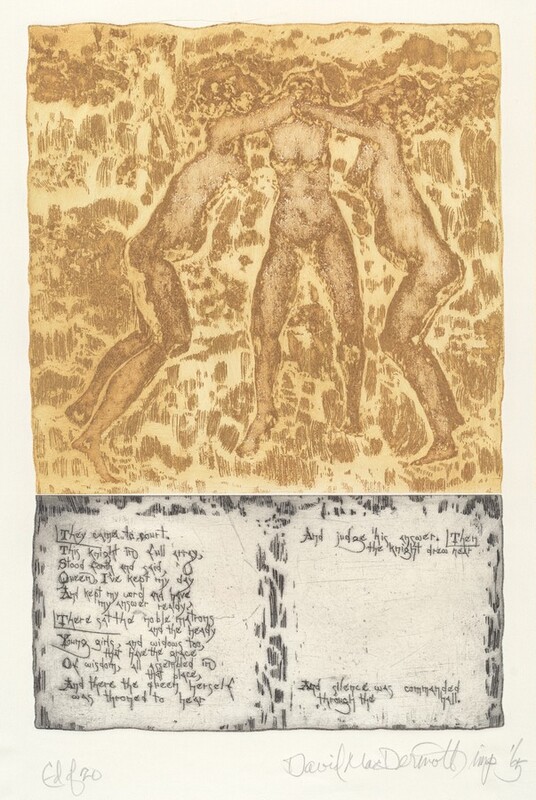 They came to court.
This knight in full array,
Stood forth and said, O
Queen, I've kept my day
And kept my word and have
my answer ready,
There sat the noble matrons
and the heady
Young girls, and widows too,
that have the grace
Of wisdom, all assembled in
that place,
And there the queen herself
was throned to hear
And judge his answer. Then
the knight drew near
And silence was commanded
through the hall.
Ed of 30
David MacDermott imp '65